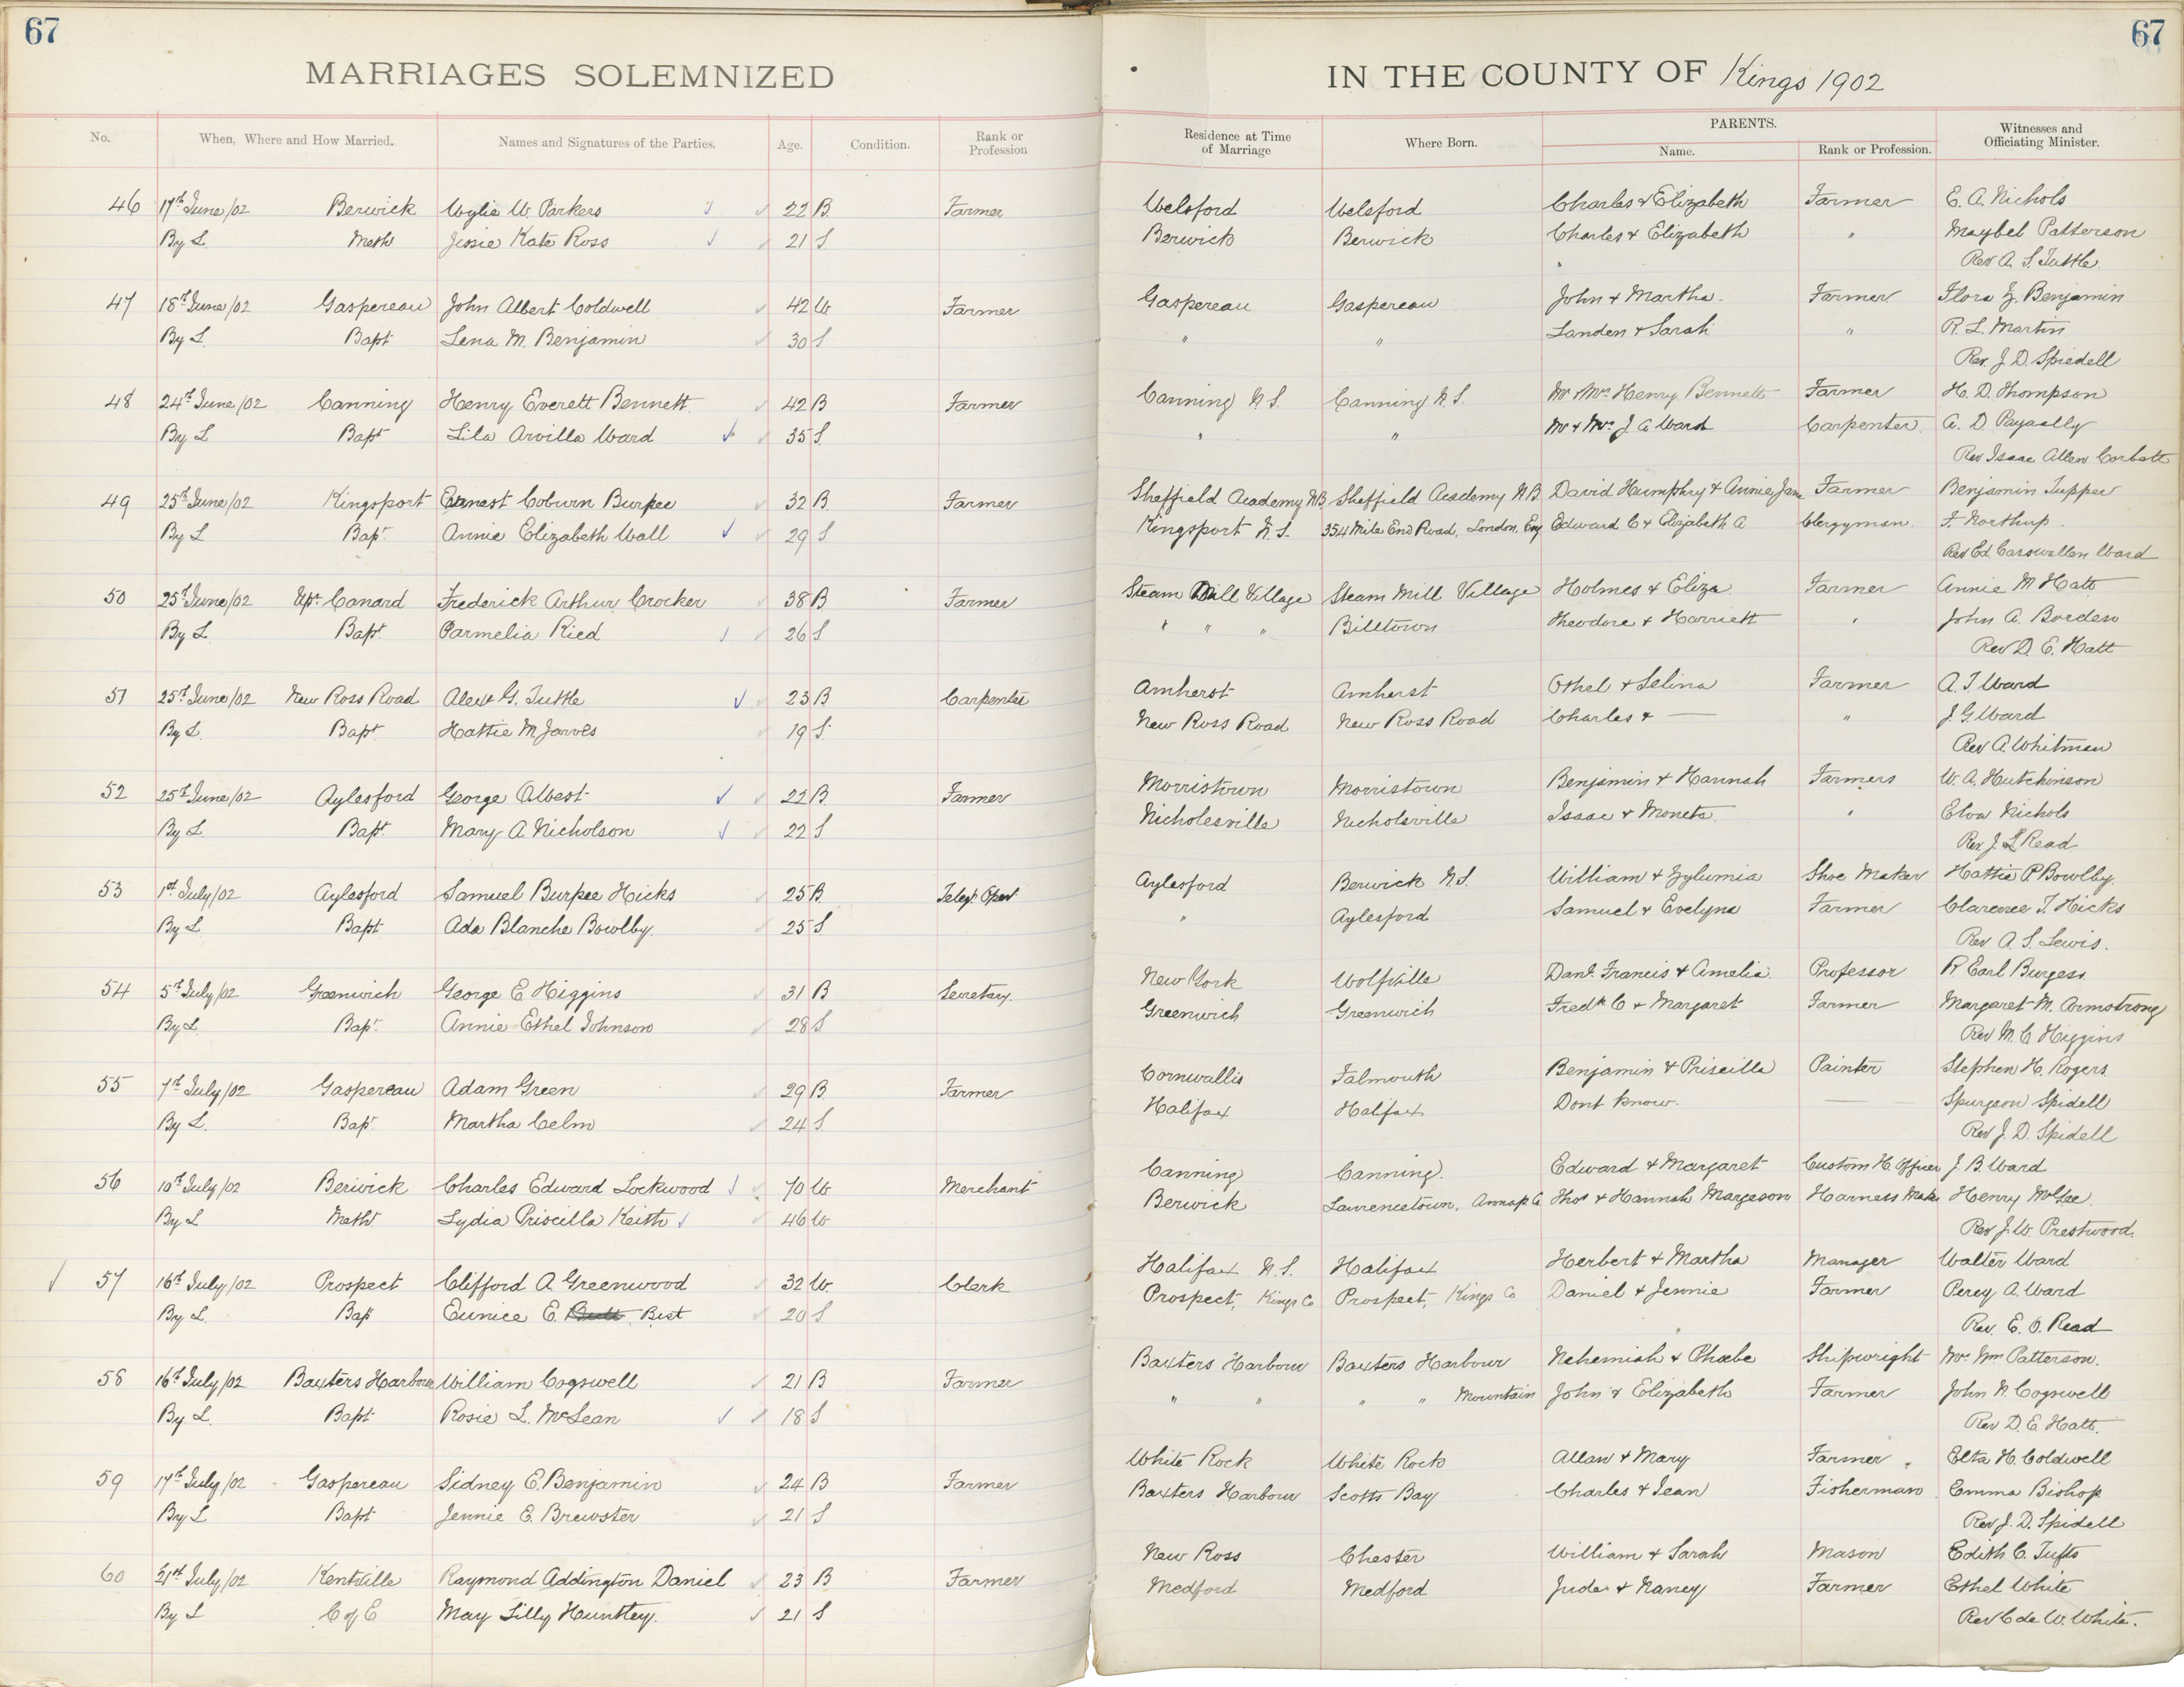 67
67
MARRIAGES SOLEMNIZED IN THE COUNTY OF Kings 1902
No. When, Where and How Married. Names and Signatures of the Parties. Age. Condition. Rank or Profession Residence at Time of Marriage Where Born. PARENTS. Name. Rank or Profession. Witnesses and Officiating Minister.
46 17th June/02 Berwick Wylie W. Parkers 22 B. Farmer Welsford Welsford Charles & Elizabeth Farmer E. A. Nichols
By L. Meth Jessie Kate Ross 21 S Berwick Berwick Charles & Elizabeth " Maybel Patterson
Rev A. S. Tuttle.
47 18th June/02 Gaspereau John Albert Coldwell 42 W Farmer Gaspereau Gaspereau John & Martha. Farmer Flora Z. Benjamin
By L. Bapt Lena M. Benjamin 30 S " " Landen & Sarah " R. L. Martin
Rev. J. D. Spiedell
48 24th June/02 Canning Henry Everett Bennett. 42 B Farmer Canning N. S. Canning N. S. Mr & Mrs Henry Bennett Farmer H. D. Thompson
By L Bapt Lila Arvilla Ward 35 S. " " Mr & Mrs J. A Ward Carpenter. A. D.
Rev Isaac Allen Corbett
49 25th June/02 Kingsport Ernest Coburn Burpee 32 B. Farmer Sheffield Academy N.B. Sheffield Academy N.B. David Humphry & Annie Jane Farmer Benjamin Tupper
By L Bapt. Annie Elizabeth Wall 29 S Kingsport N. S. 354 Mile End Road, London, Eng Edward C & Elizabeth A Clergyman. F. Northup
Rev Ed. Ward
50 25th June/02 Upr. Canard Frederick Arthur Crocker 38 B Farmer Steam Mill Village Steam Mill Village Holmes & Eliza Farmer Annie M Hatt
By L. Bapt. Parmelia Ried 26 S " " " Billtown Theodore & Harriett " John A. Borden
Rev D. E. Hatt
51 25th June/02 New Ross Road Alex G. Tuttle 23 B Carpenter Amherst Amherst Othel & Selina Farmer A. T. Ward
By L. Bapt. Hattie M Jarves 19 S. New Ross Road New Ross Road Charles & — " J. G. Ward
Rev A. Whitman
52 25th June/02 Aylesford George Albest 22 B. Farmer Morristown Morristown Benjamin & Hannah Farmers W. A. Hutchinson
By L. Bapt. Mary A. Nicholson 22 S Nicholesville Nicholsville Isaac & Moneta " Elva Nichols
Rev. J. L Read
53 1st July/02 Aylesford Samuel Burpee Hicks 25 B. Telegh Oper Aylesford Berwick N.S. William & Zylumia Shoe Maker Hattie P Bowlby.
By L Bapt Ada Blanche Bowlby. 25 S " Aylesford Samuel & Evelyne Farmer Clarence T. Hicks
Rev A. S. Lewis.
54 5th July/02 Greenwich George E. Higgins 31 B Secretary. New York Wolfville Danl. Francis & Amelia. Professor R Earl Burgess
By L. Bapt. Annie Ethel Johnson 28 S Greenwich Greenwich Fredk C & Margaret Farmer Margaret M. Armstrong
Rev M. C Higgins
55 7th July/02 Gaspereau Adam Green 29 B. Farmer Cornwallis Falmouth Benjamin & Priscilla Painter Stephen H. Rogers.
By L. Bapt Martha Celm 24 S. Halifax Halifax Dont know. — Spurgeon Spidell
Rev J. D. Spidell
56 10th July/02 Berwick Charles Edward Lockwood 70 W Merchant Canning Canning. Edward & Margaret Custom H. Officer J. B. Ward
By L Meth Lydia Priscilla Keith 46 W Berwick Lawrencetown, Annap. Co Thos & Hannah Margeson Harness Maker Henry McGee.
Rev J. W. Prestwood.
57 16th July/02 Prospect Clifford A. Greenwood 32 W. Clerk Halifax N. S. Halifax Herbert & Martha Manager Walter Ward
By L. Bap Eunice E. Best 20 S Prospect, Kings Co Prospect, Kings Co Daniel & Jennie Farmer Percy A. Ward
Rev. E. O. Read
58 16th July/02 Baxters Harbour William Cogswell 21 B Farmer Baxters Harbour Baxters Harbour Nehemiah & Phoebe Shipwright Mr. Wm Patterson.
By L. Bapt Rosie L. McLean 18 S " " " " Mountain John & Elizabeth Farmer John N. Cogswell
Rev D. E. Hatt.
59 17th July/02 Gaspereau Sidney E. Benjamin 24 B Farmer White Rock White Rock Allan & Mary Farmer Elta H. Coldwell
By L Bapt Jennie E. Brewster 21 S Baxters Harbour Scotts Bay Charles & Jean Fisherman Emma Bishop
Rev J. D. Spidell
60 21st July/02 Kentville Raymond Addington Daniel 23 B Farmer New Ross Chester William & Sarah Mason Edith C. Tufts
By L C of E May Lilly Huntley. 21 S Medford Medford Jude & Nancy Farmer Ethel White
Rev C de W. White.